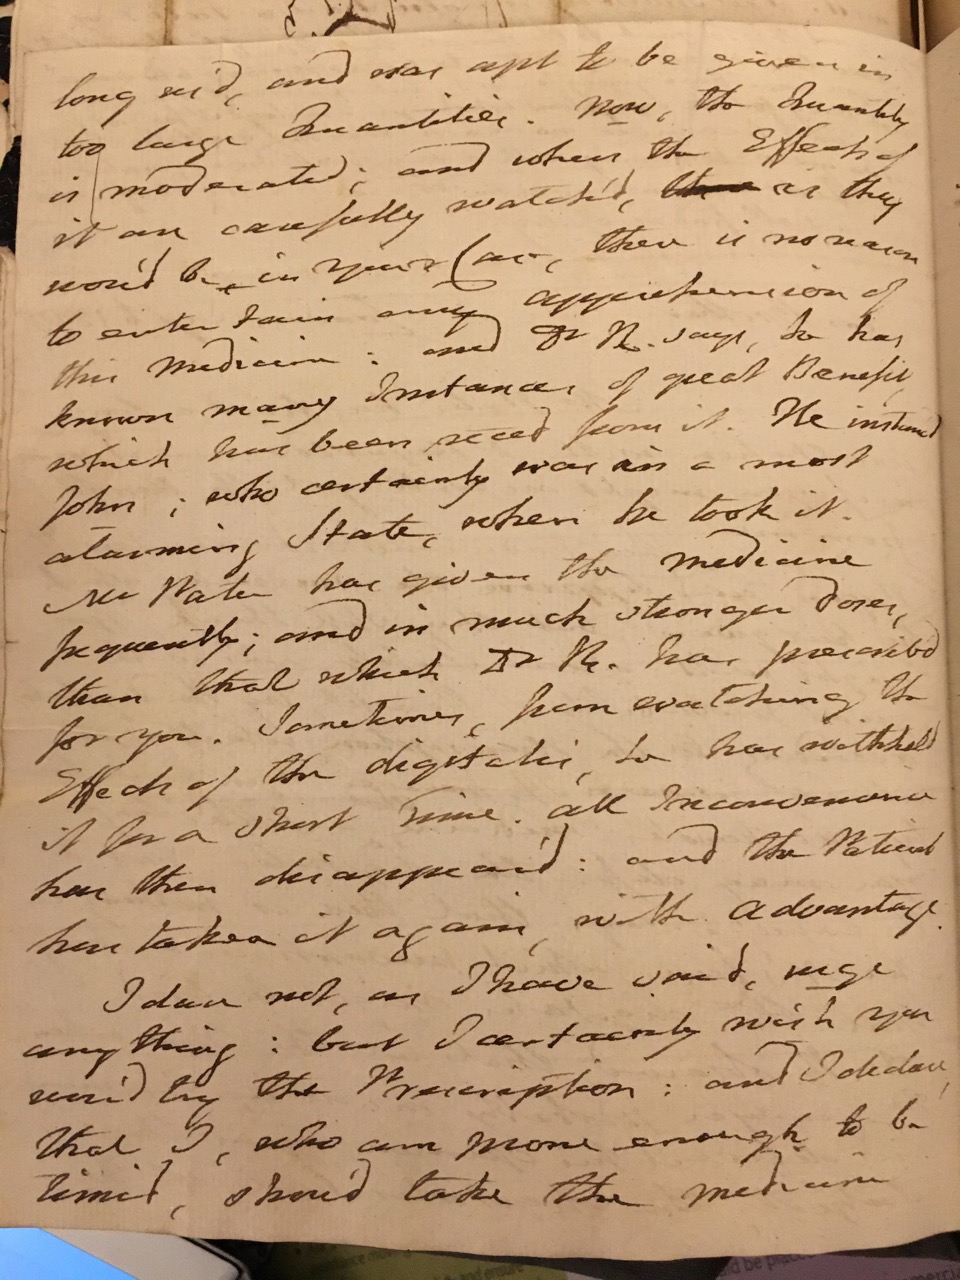 long us'd, and was apt to be given in
too large Quantities. Now, the Quantity
is moderated; and when the Effects of
it are carefully watch'd, as they
wou'd be, in your Case, there is no reason
to entertain any apprehension of
this Medicine: and Dr R. says, he has
known many Instances of great Benefit,
which has been reced from it. He instanced
John; who certainly was in a most
alarming State, when he took it.
Mr Pater has given the medicine
frequently; and in much stronger Doses,
than that which Dr R. has prescribed
for you. Sometimes, from watching the
Effects of the digitalis, he has withheld
it for a short Time. All Inconvenience
has then disappear'd: and the Patient
has taken it again, with advantage.
I dare not, as I have said, urge
anything: but I certainly wish you
wou'd try the Prescription: and I declare,
that I, who am prone enough to be
timid, shou'd take the medicine